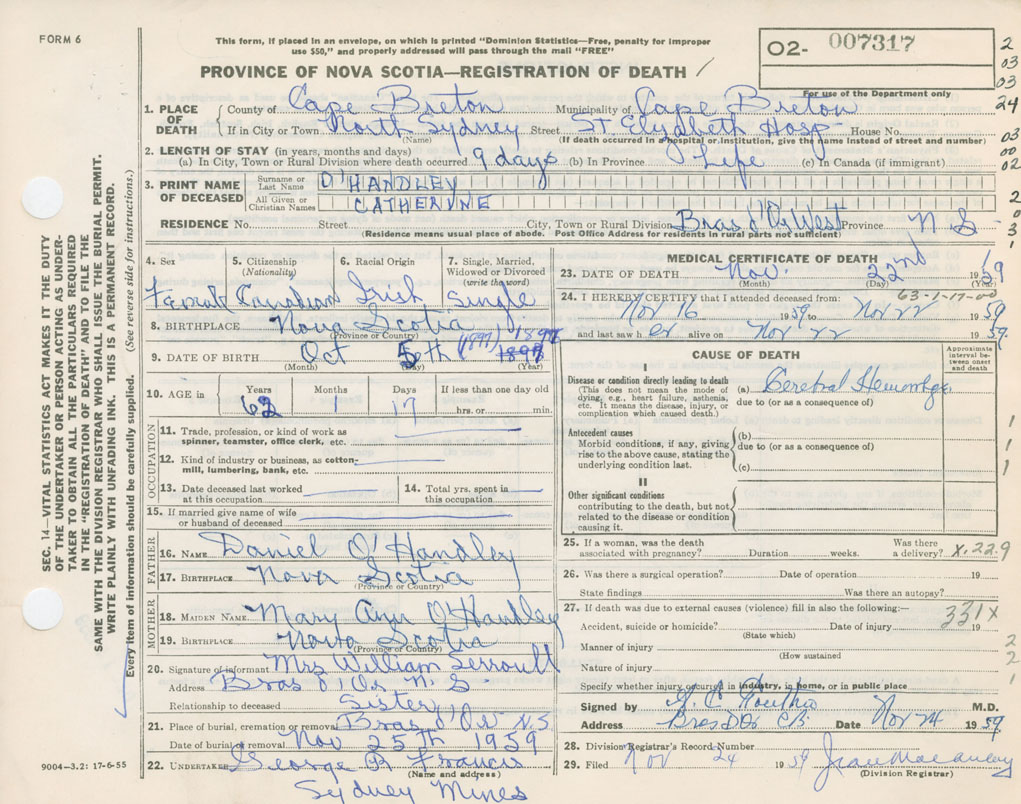 FORM 6
This form, if placed in an envelope, on which is printed "Dominion Statistics—Free, penalty for improper
use $50," and properly addressed will pass through the mail "FREE"
PROVINCE OF NOVA SCOTIA—REGISTRATION OF DEATH
O2- 007317
For use of the Department only
2
03
03
24
03
00
02
2
0
3
1
1. PLACE OF DEATH
County of Cape Breton Municipality of Cape Breton
If in City or Town North Sydney Street St. Elizabeth Hosp House No.
(Name) (If death occurred in a hospital or institution, give the name instead of street and number)
2. LENGTH OF STAY (in years, months and days)
(a) In City, Town or Rural Division where death occurred 9 days (b) in Province Life (c) in Canada (if immigrant)
3. PRINT NAME OF DECEASED
Surname or Last Name O'HANDLEY
All Given or Christian Names CATHERINE
RESIDENCE No. Street City, Town or Rural Division Bras d'Or West Province N S
(Residence means usual place of abode. Post Office Address for residents in rural parts not sufficient)
4. Sex Female
5. Citizenship (Nationality) Canadian
6. Racial Origin Irish
7. Single, Married, Widowed or Divorced (write the word) Single
8. BIRTHPLACE Nova Scotia
(Province or Country)
9. DATE OF BIRTH Oct 5th (1897) 1897 1898
(Month) (Day) (Year)
10. AGE in Years 62 Months 1 Days 17 If less than one day old hrs. or min.
OCCUPATION
11. Trade, profession, or kind of work as
spinner, teamster, office clerk, etc.
12. Kind of industry or business, as cotton-
mill, lumbering, bank, etc.
13. Date deceased last worked
at this occupation
14. Total yrs. spent in
this occupation
15. If married give name of wife
or husband of deceased
FATHER
16. NAME Daniel O'Handley
17. BIRTHPLACE Nova Scotia
(Province or Country)
MOTHER
18. MAIDEN NAME Mary Ann O'Handley
19. BIRTHPLACE Nova Scotia
(Province or Country)
20. Signature of informant Mrs William
Address Bras d'Or N.S.
Relationship to deceased Sister
21. Place of burial, cremation or removal Bras d'Or N.S
Date of burial or removal Nov 25th 1959
22. UNDERTAKER George R Francis
(Name and address)
Sydney Mines
MEDICAL CERTIFICATE OF DEATH
23. DATE OF DEATH Nov. 22nd 1959
(Month) (Day) (Year)
63-1-17-00
24. I HEREBY CERTIFY that I attended deceased from:
Nov 16 1959 to Nov 22 1959
and last saw her alive on Nov 22 1959.
CAUSE OF DEATH
Approximate interval between onset and death
I
Disease or condition directly leading to death
(This does not mean the mode of
dying, e.g., heart failure, asthenia,
etc. It means the disease, injury, or
complication which caused death.)
(a) Cerebral Hemorrhage
due to (or as a consequence of)
Antecedent causes
Morbid conditions, if any, giving
rise to the above cause, stating the
underlying condition last.
(b)
due to (or as a consequence of)
(c)
II
Other significant conditions
contributing to the death, but not
related to the disease or condition
causing it.
1
1
1
25. If a woman, was the death
associated with pregnancy? Duration weeks. Was there
a delivery? X.22.9
26. Was there a surgical operation? Date of operation 19
State findings Was there an autopsy?
27. If death was due to external causes (violence) fill in also the following:—
331X
Accident, suicide or homicide? Date of injury 19
(State which)
Manner of injury
(How sustained
Nature of injury
2
2
1
Specify whether injury occurred in industry, in home, or in public place
Signed by M.D.
Address Bras D'Or C.B. Date Nov 24 1959.
28. Division Registrar's Record Number
29. Filed Nov 24 1959 Jean Macauley
(Division Registrar)
SEC. 14—VITAL STATISTICS ACT MAKES IT THE DUTY
OF THE UNDERTAKER OR PERSON ACTING AS UNDER-
TAKER TO OBTAIN ALL THE PARTICULARS REQUIRED
IN THE "REGISTRATION OF DEATH" AND FILE THE
SAME WITH THE DIVISION REGISTRAR WHO SHALL ISSUE THE BURIAL PERMIT.
WRITE PLAINLY WITH UNFADING INK. THIS IS A PERMANENT RECORD.
Every item of information should be carefully supplied. (See reverse side for instructions.)
9004—3.2: 17-6-55